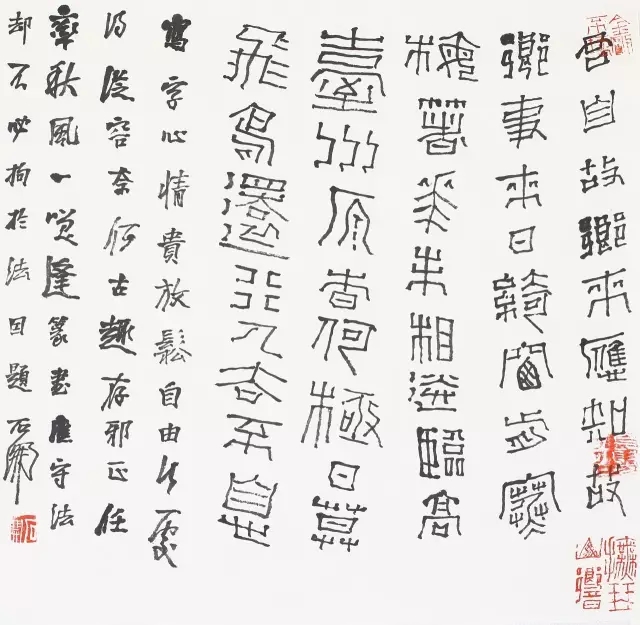 君自故鄉來應知故
鄉事來日綺窗前寒
梅著花未相送臨高
臺川原杳何極日暮
飛鳥還行人去不息
寫字心情貴放鬆自由行處
得從容奈何古趣存邪正任
率秋風一笑逢篆書應守法
却不必拘於法因題石開